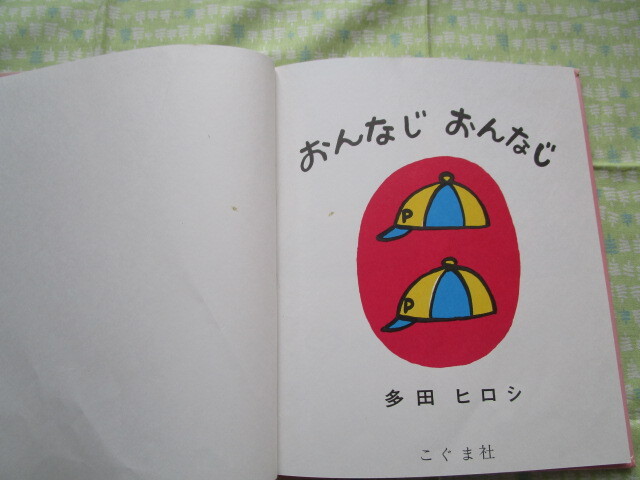 おんなじ おんなじ
P
P
多田 ヒロシ
こぐま社